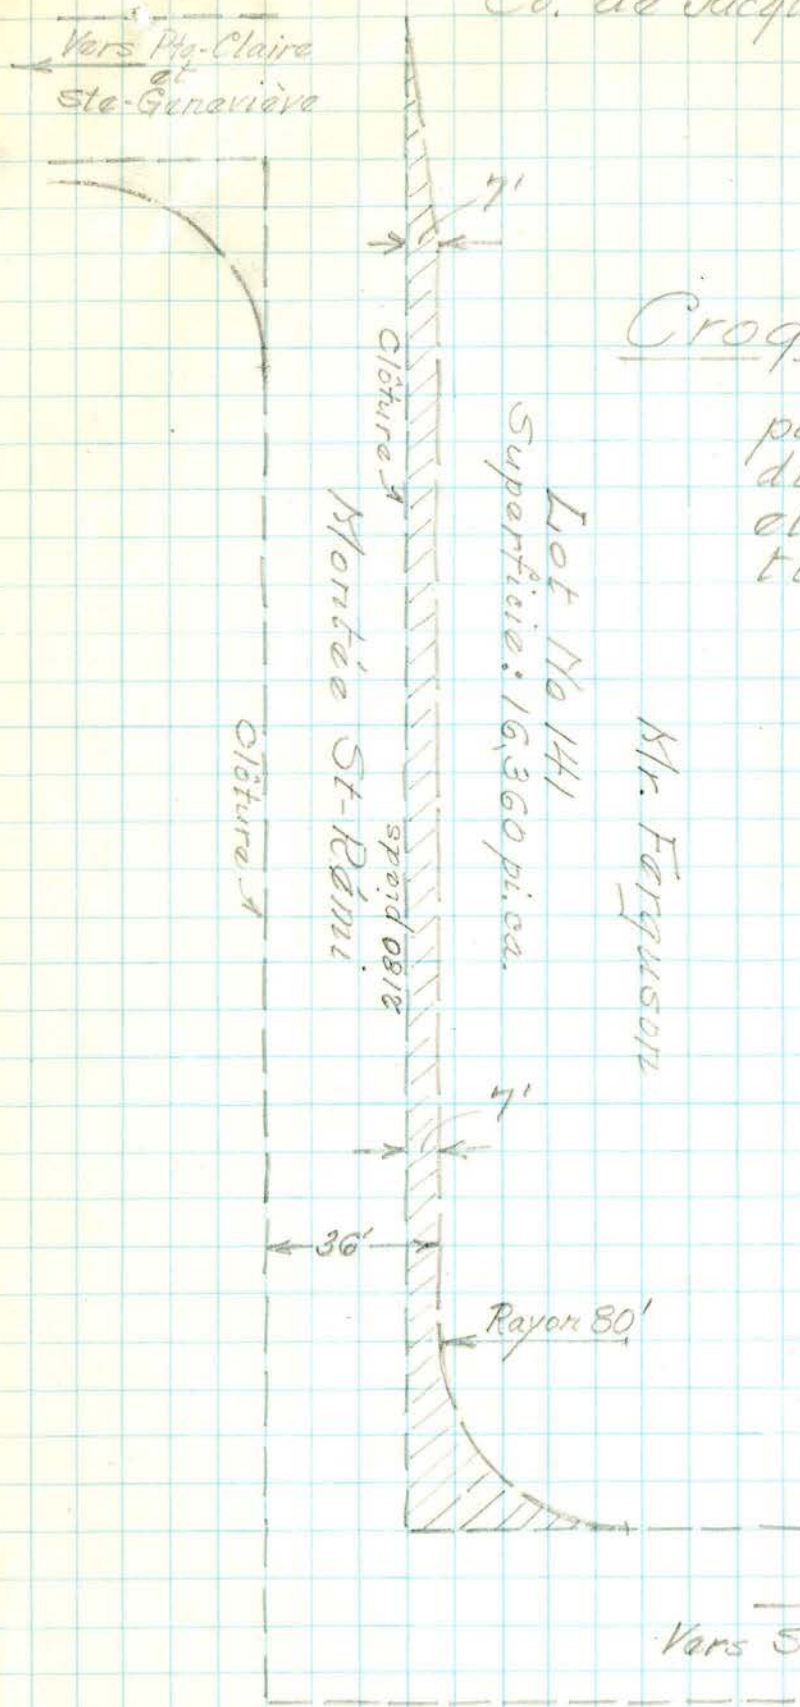 Co. de Jacq
Vers Pte-Claire
et
Ste-Geneviève
7'
Croq
Clôture
Lot No 141
Superficie: 16,360 pi. ca.
Montée St-Rémi
Mr. Ferguson
Clôture
2180 pieds
7'
36'
Rayon 80'
Vers S